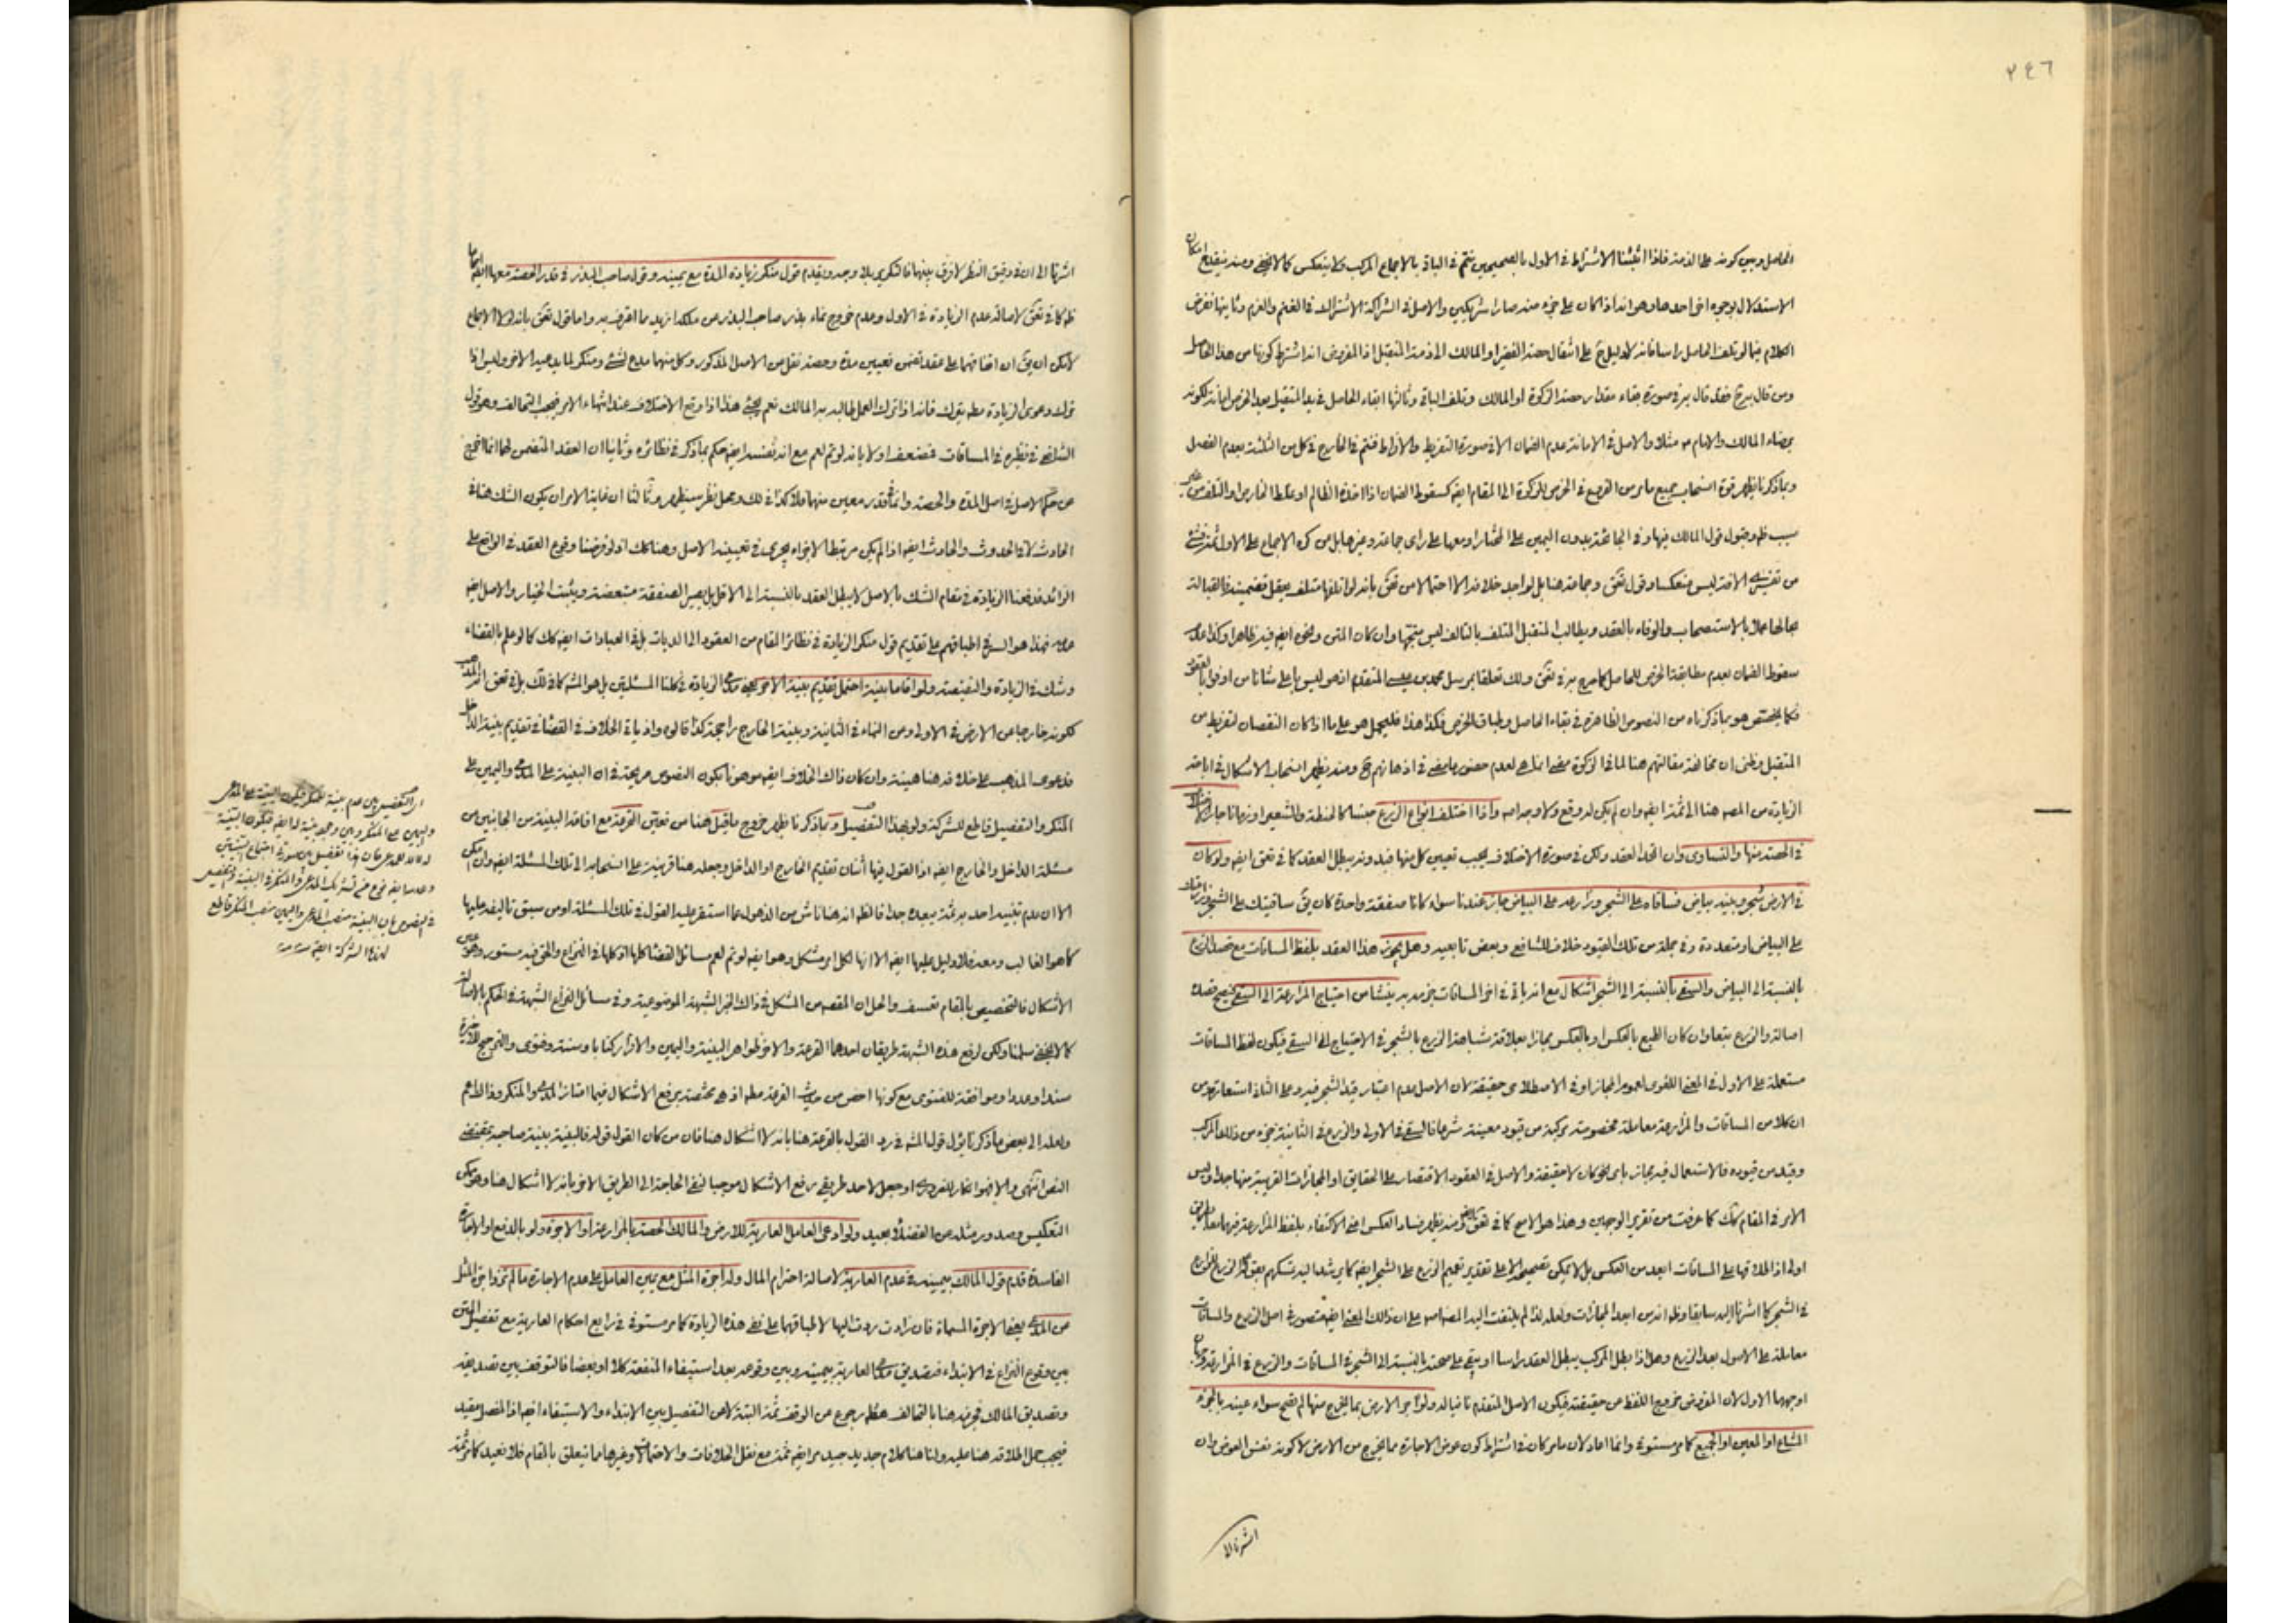 ٢٤٦
الحاصل وبين كونه على الذمة فاذا اثبتنا الاشتراط في الاول بالصحيحين يتم في الباقي بالاجماع المركب ولا ينعكس كما لا يخفى ومنه ينقدح امكان
الاستدلال بوجوه اخر احدها وهو انه اذا كان على جزء منه صارا شريكين والاصل في الشركة الاشتراك في الغنم والغرم وثانيها نفرض
الكلام فيما لو تلف الحاصل راسا فانه لا دليل ح على انتقال حصة الفقير او المالك الى ذمة المتقبل اذ المفروض انه اشترط كونها من هذا الحاصل
ومن قال به ح فقد قال به في صورة بقاء مقدار حصة الزكوة او المالك وتلف الباقي وثالثها ابقاء الحاصل في يد المتقبل بعد الخرص امانة لكونه
برضاء المالك والامام مثلا والاصل في الامانة عدم الضمان الا في صورة التفريط والافراط فتم في الخارج في كل من الثلثة بعدم الفصل
وبما ذكرنا يظهر قوة انسحاب جميع ما مر من الفروع في الخرص للزكوة الى المقام ايضا كسقوط الضمان اذا اخذه الظالم او غلط الخارص او التلف من
سبب ظهر وقبول قول المالك فيها وفي الجائحة بدون اليمين على المختار او معها على راى جماعة وغيرها بل من كره الاجماع على الاول ثمة
من تفسير الآفة ليس منعكسا وقول وجماعة هنا بل لم اجد خلافه الا احتمالا من بانه لو اتلفها متلف يعقل تضمينه فالقبالة
بحالها عملا بالاستصحاب والوفاء بالعقد ويطالب المتقبل المتلف بالتالف ليس متجها وان كان المتن ونحوه ايضا فيه ظاهرا وكذا عدم
سقوط الضمان بعدم مطابقة الخرص للحاصل كما صرح به في ولك تعلقا بمرسل محمد بن عيسى المتقدم اذ هو ليس باعلى شانا من اوفوا بالعقود
فكما يختص هو بما ذكرناه من النصوص الظاهرة في بقاء الحاصل وطباق الخرص فكذا هذا فليحمل هو على ما اذا كان النقصان لتفريط من
المتقبل وظني ان مخالفة مقالتهم هنا لما في الزكوة مبنى امثاله لعدم حضور ما مضى في اذهانهم ح ومنه يظهر انسحاب الاشكال في اباحة
الزيادة من المصه هنا الى ثمة ايضا وان لم يكن له وقع ولا وجه اصلا واذا اختلف انواع الزرع جنسا كالحنطة والشعير او زمانا جاز
في الحصة منها والتساوى وان اتحد العقد ولكن في صورة الاختلاف يجب تعيين كل منها فبدونه يبطل العقد كما في ايضا ولو كان
في الارض شجر وبينه بياض فساقاه على الشجر وزارعه على البياض جاز عندنا سواء كانا صفقة واحدة كان يق ساقيتك على الشجر
على البياض او متعددة وفي جملة من تلك القيود خلاف للشافعي وبعض تابعيه وهل يجوز هذا العقد بلفظ المساقات مع قصد الزرع
بالنسبة الى البياض والسقي بالنسبة الى الشجر اشكال مع انه ياتي في اخر المساقات جزمه به ينشا من احتياج المزارعة الى السقي فيصح قصده
اصالة والزرع تبعا وان كان الطبع بالعكس او بالعكس مجازا بعلاقة مشابهة الزرع بالشجر في الاحتياج الى السقي فيكون لفظ المساقات
مستعملة على الاول في المعنى اللغوى لعموم المجاز او في الاصطلاحى حقيقة لان الاصل عدم اعتبار قيد الشجر فيه وعلى الثاني استعارة ومن
ان كلا من المساقات والمزارعة معاملة مخصوصة مركبة من قيود معينة شرعا فالسقي في الاولى والزرع في الثانية جزء من ذلك المركب
وقيد من قيوده فالاستعمال فيه مجاز باى نحو كان لا حقيقة والاصل في العقود الاقتصار على الحقايق او المجازات القريبة منها جدا وليس
الامر في المقام كك كما عرفت من تقرير الوجهين وهذا هو الاصح كما في ومنه يظهر فساد العكس اعنى الاكتفاء بلفظ المزارعة فيهما بطريق
اولى اذ اطلاقها على المساقات ابعد من العكس بل لا يمكن تصحيحه الا على تقدير تعميم الزرع على الشجر ايضا كما يرشد اليه تمسكهم
في الشجر كما اشرنا اليه سابقا وظهر انه من ابعد المجازات ولعله لذا لم يلتفت اليه المصه اصلا على ان ذلك المعنى ايضا متصور في اصل الزرع والمساقات
معاملة على الاصول بعد الزرع وهل اذا بطل المركب يبطل العقد راسا او يبقى على صحته بالنسبة الى الشجر في المساقات والزرع في المزارعة وجهان
اوجههما الاول لان المفروض خروج اللفظ عن حقيقته فيكون الاصل المتقدم نافيا له ولو آجر الارض بما يخرج منها لم يصح سواء عينه بالجزء
المشاع او المعين او الجميع كما مر مستوفى وانما اعاد لان ما مر كان في اشتراط كون عوض الاجارة مما يخرج من الارض لا كونه نفس العوض وان
اشرنا الى
اشرنا الى ان في دقيق النظر لا فرق بينهما فالتكرير بلا وجه ويقدم قول منكر زيادة المدة مع يمينه وقول صاحب البذر في قدر الحصة معها ايضا
كما في لاصالة عدم الزيادة في الاول وعدم خروج نماء بذر صاحب البذر عن ملكه ازيد مما اقر به واما قول بانه لولا الاجماع
لامكن ان يق ان اتفاقهما على عقد تضمن تعيين مدة وحصة نقل من الاصل المذكور وكل منهما مدع لشئ ومنكر لما يدعيه الاخر وليس اذا
ترك دعوى الزيادة مطلقا يترك فانه اذا ترك العمل طالبه به المالك نعم يجئ هذا اذا وقع الاختلاف عند انتهاء الامر فيجب التحالف وهو قول
الشافعي في نظيره في المساقات فضعفه اولا بانه لو تم لعم مع انه نفسه ايضا حكم بما ذكر في نظائره وثانيا ان العقد المتضمن لهما انما اخرج
عن حكم الاصل في اصل المدة والحصة واما قدر معين منهما فلا كذا في لك ومحل نظر سيظهر وثالثا ان غاية الامر ان يكون الشك هنا في
الحادث لا في الحدوث والحادث ايضا اذا لم يكن مرتبط الاجزاء يجرى في تعيينه الاصل وهنا كك اذ لو فرضنا وقوع العقد في الواقع على
الزائد فدفعنا الزيادة في مقام الشك بالاصل لا يبطل العقد بالنسبة الى الاقل بل يصير الصفقة متبعضة ويثبت الخيار والاصل ايضا
عدمه فهذا هو السر في اطباقهم على تقديم قول منكر الزيادة في نظائر المقام من العقود الى الديات بل في العبادات ايضا كك كما لو علم بالقضاء
وشك في الزيادة والنقيصة ولو اقاما بينة احتمل تقديم بينة الاخر وهو مدعى الزيادة في كلتا المسئلتين بل هو المشهور كما في لك بل في انه المذهب
لكونه خارجا عن الارض في الاولى وعن النماء في الثانية وبينة الخارج راجحة كذا قالوه واذ ياتي الخلاف في القضاء في تقديم بينة الداخل
فدعوى المذهب على خلافه هنا هينة وان كان ذاك الخلاف ايضا موهونا بكون النصوص صريحة في ان البينة على المدعى واليمين على
المنكر والتفصيل قاطع للشركة ولو بهذا التفصيل وبما ذكرنا يظهر خروج ما قيل هنا من تعين القرعة مع اقامة البينة من الجانبين من
مسئلة الداخل والخارج ايضا اذ القول فيها اثنان تقديم الخارج او الداخل وجعله هنا قرينة على انسحابه الى تلك المسئلة ايضا وان امكن
الا ان عدم تقييد احد به ثمة يبعده جدا فالظاهر انه هنا ناش من الذهول عما استقر عليه القول في تلك المسئلة او من سبق تاليفه عليها
كما هو الغالب ومعه فلا دليل عليها ايضا الا انها لكل امر مشكل وهو ايضا لو تم لعم مسائل القضا كلها اذ كلها في النزاع والحق فيه مستور وهو عين
الاشكال فالتخصيص بالمقام تعسف والحل ان المقصود من المشكل في ذاك الخبر الشبهة الموضوعية وفي مسائل النزاع الشبهة في الحكم بالاصالة
كما لا يخفى سلمنا ولكن لرفع هذه الشبهة طريقان احدهما القرعة والاخر ظواهر البينة واليمين والاقرار كتابا وسنة وفتوى والترجيح للاخيرة
سندا وعددا وموافقة للفتوى مع كونها اخص من حديث القرعة مطلقا اذ هى مختصة برفع الاشكال فيما امتاز المدعى والمنكر وذاك اعم
ولعله الى بعض ما ذكرنا يؤل قول المشهور في رد القول بالقرعة هنا بانه لا اشكال هنا فان من كان القول قوله فالبينة بينة صاحبه بمقتضى
النص انتهى والا فهو انكار للضرورى او جعل لاحد طريقي رفع الاشكال موجبا لنفي الحاجة الى الطريق الاخر بانه لا اشكال هنا وهو ممكن
التعكيس وصدور مثله من الفضلاء بعيد ولو ادعى العامل العارية للارض والمالك الحصة بالمزارعة او الاجرة ولو بالدفع او الاجارة
الفاسدة قدم قول المالك بيمينه في عدم العارية لاصالة احترام المال وله اجرة المثل مع يمين العامل على عدم الاجارة ما لم تزد اجرة المثل
عن المدعى يعنى الاجرة المسماة فان زادت ردت اليها لاطباقهما على نفى هذه الزيادة كما مر مستوفى في رابع احكام العارية مع تفصيل المتن
بين وقوع النزاع في الابتداء فتصديق مدعى العارية بيمينه وبين وقوعه بعد استيفاء المنفعة كلا او بعضا فالتوقف بين تصديقه
وتصديق المالك فجزمه هنا بالتحالف مطلقا رجوع عن الوقف ثمة البتة لا عن التفصيل بين الابتداء والاستيفاء ايضا اذ المفصل مقيد
فيجب حمل اطلاقه هنا عليه ولنا هنا كلام جديد جيد مر ايضا ثمة مع نقل الخلافات والاحتمالات وغيرها مما يتعلق بالمقام فلا نعيد كما مر ثمة
اى التفصيل بين عدم بينة للمنكر فيكون البينة على المدعى
واليمين على المنكر وبين وجود بينة له ايضا فيكون البينة
له لا للمدعى فان هذا تفصيل بين صورتى اجتماع البينتين
وعدمه ايضا نوع من تشريك المدعى والمنكر في البينة والتفصيل
في النصوص بان البينة منصب المدعى واليمين منصب المنكر قاطع
لهذه الشركة ايضا منه